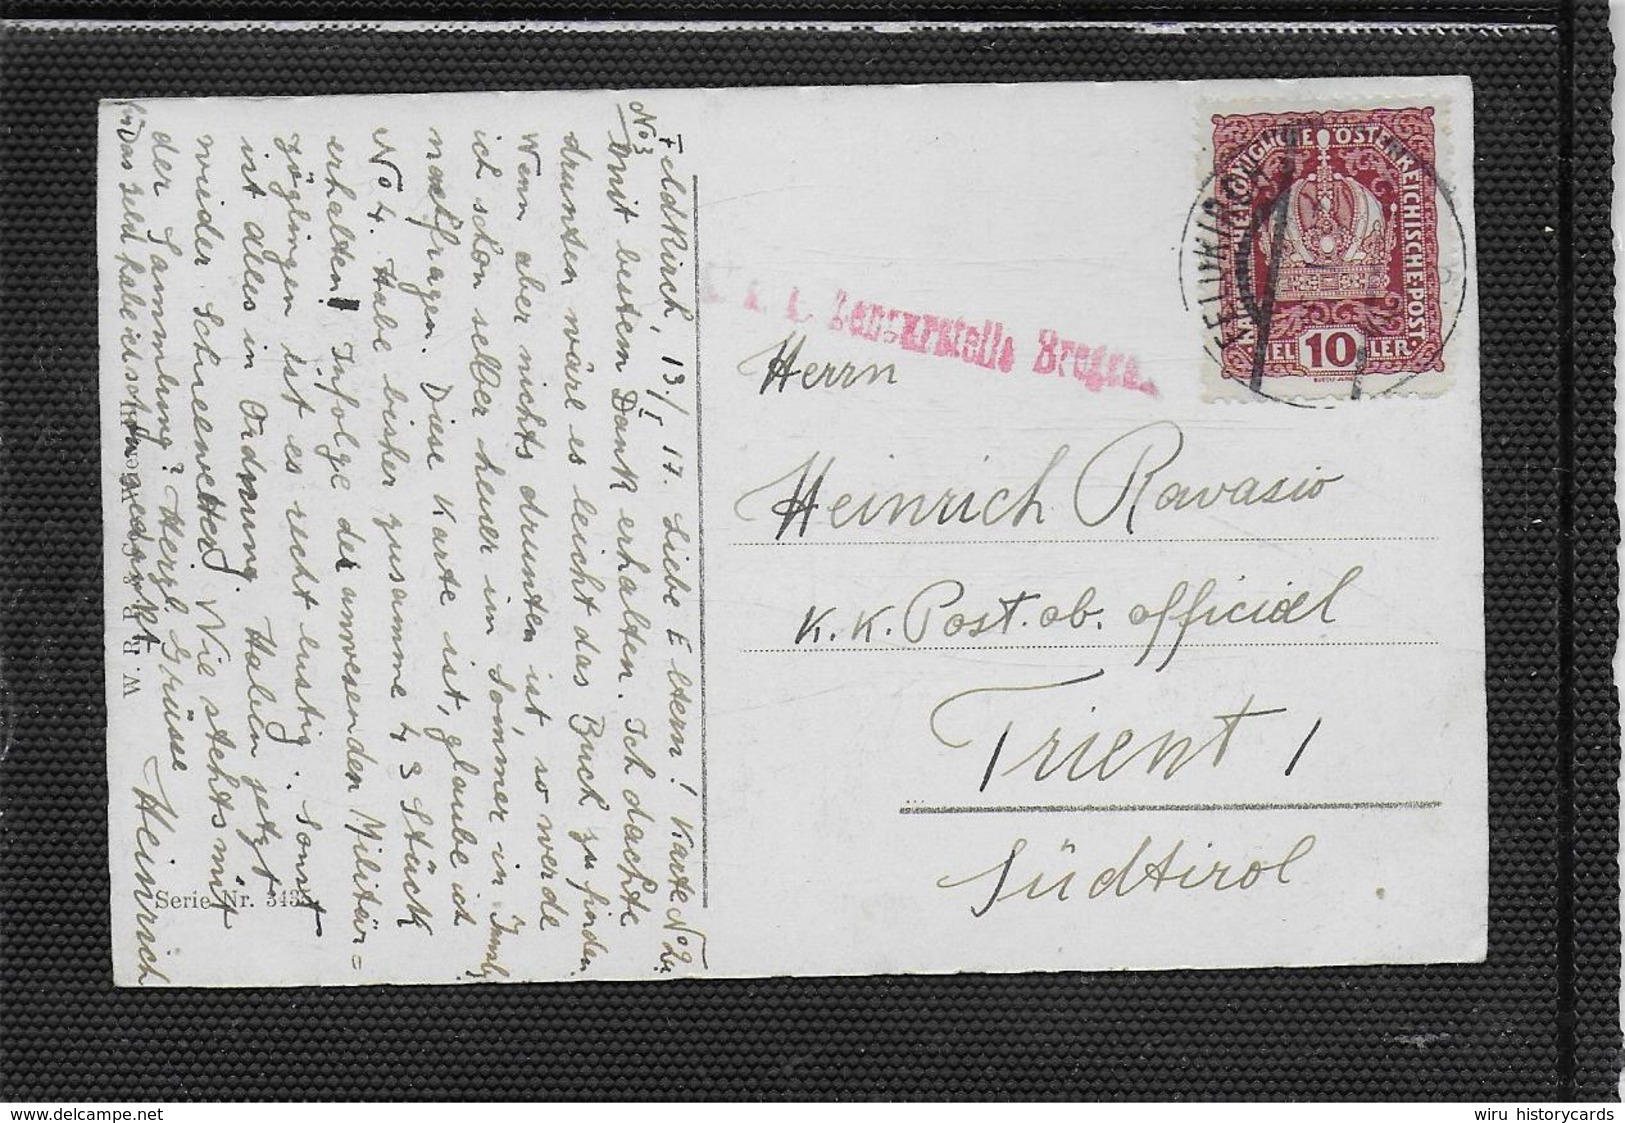 Feldkirch, 13./I. 17. Liebe Eltern! Karte No 2 u.
No 3 mit bestem Dank erhalten. Ich dachte
drunten wäre es leicht das Buch zu finden.
Wenn aber nichts drunten ist, so werde
ich schon selber heuer im Sommer in Innsb.
nachfragen. Diese Karte ist, glaube ich
No 4. Habe bisher zusamme 4 3 Stück
erhalten! Infolge der anwesenden Militär=
zöglingen ist es recht lustig. Sonst
ist alles in Ordnung. Haben jetzt
wieder Schneewetter. Wie stehts mit
der Sammlung? Herzl. Grüsse
Heinrich
für Das Geld habe ich sofort
W. R. B.
Serie Nr. 343
k. k. Zensurstelle Bregenz
KAISERLICHE KÖNIGLICHE ÖSTERREICHISCHE POST
HELLER
10
FELDKIRCH
Herrn
Heinrich Ravasio
K. K. Post. ob. official
Trient 1
Südtirol
delcampe.net
wiru historycards